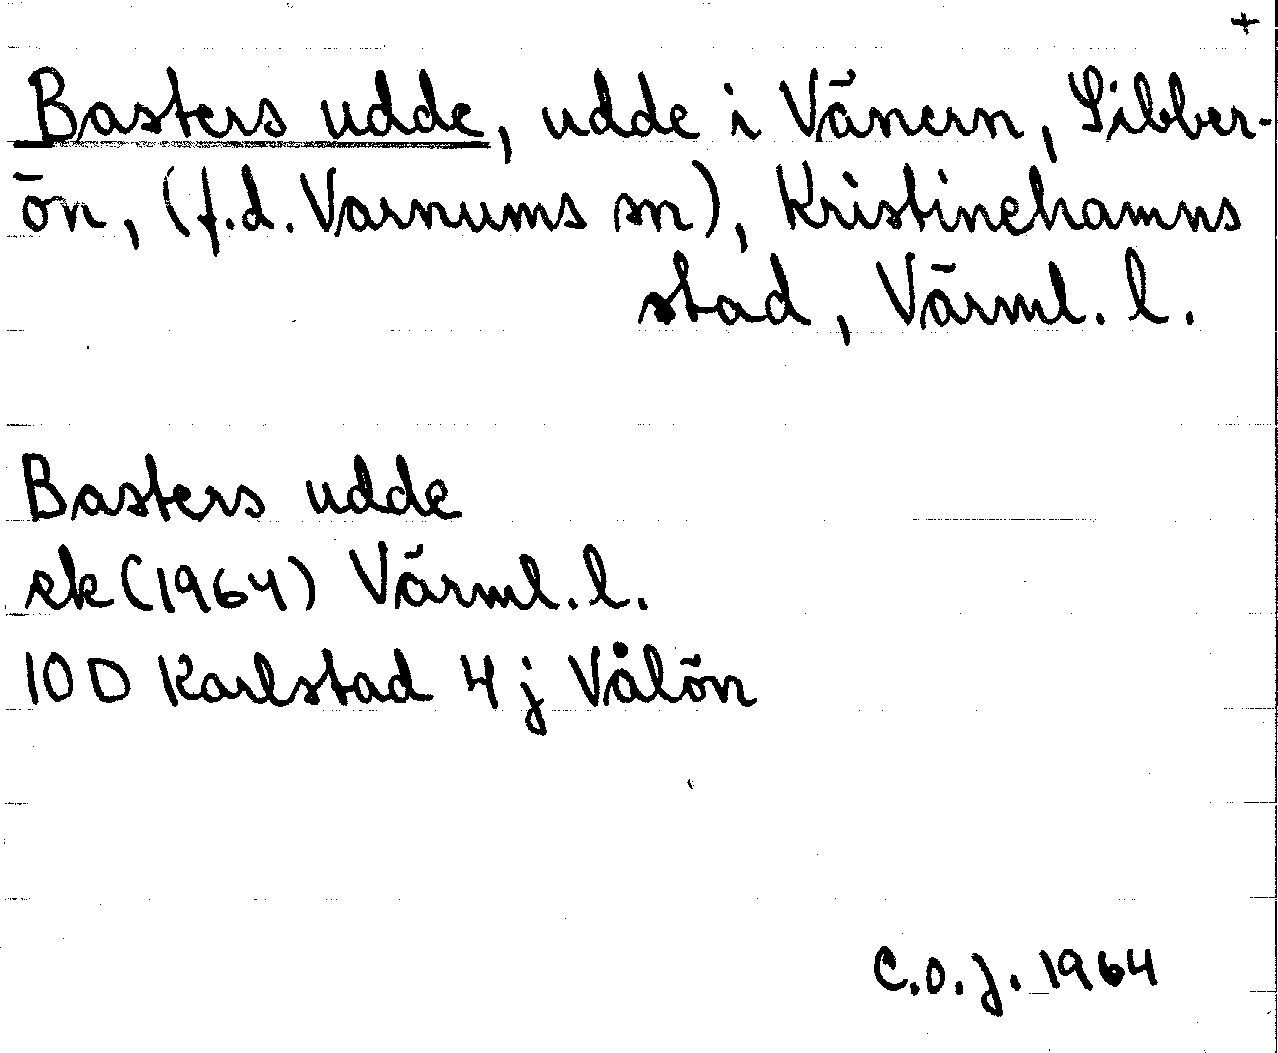 +
Basters udde, udde i Vänern, Sibber-
ön, (f.d. Varnums sn), Kristinehamns
stad, Värml. l.
Basters udde
ek (1964) Värml. l.
10 D Karlstad 4 j Vålön
C.O.J. 1964